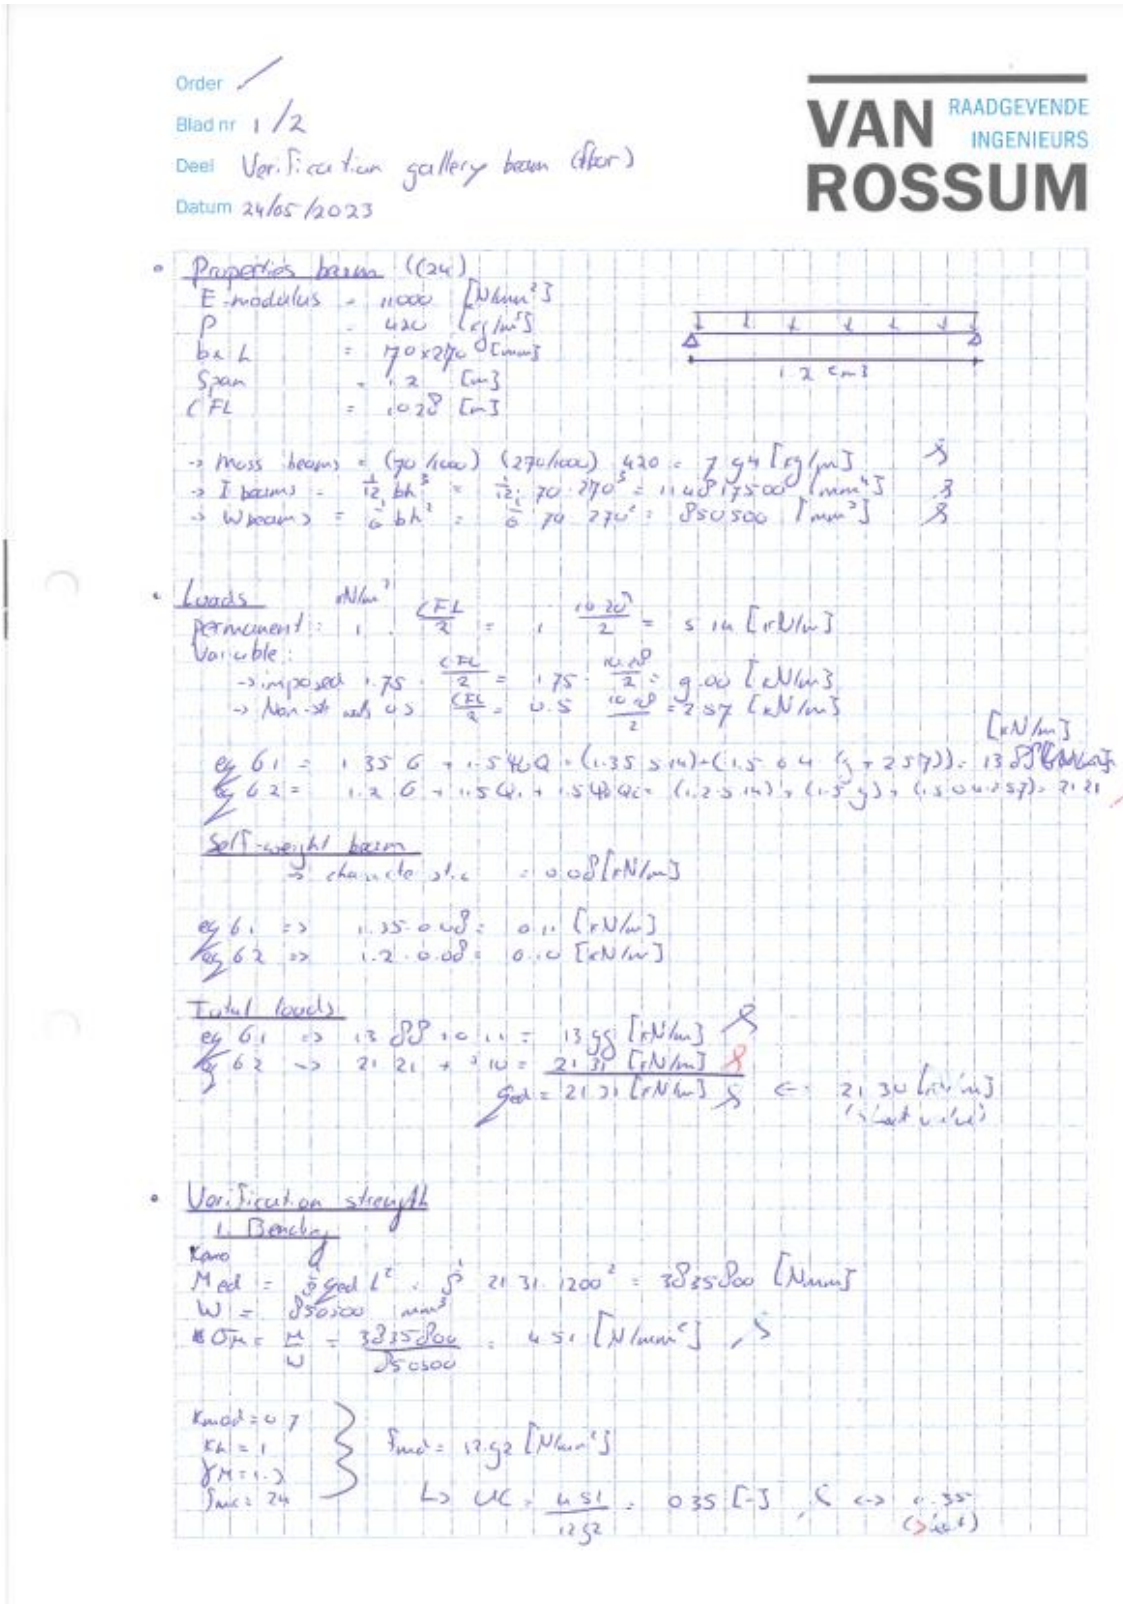 Order /
Blad nr 1/2
Deel Verification gallery beam (floor)
Datum 24/05/2023
VAN ROSSUM
RAADGEVENDE INGENIEURS
• Properties beam (C24)
E-modulus = 11000 [N/mm²]
ρ = 420 [kg/m³]
b x h = 70x270 [mm]
Span = 1.2 [m]
CFL = 10.28 [m]
1.2 [m]
-> Mass beams = (70/1000) (270/1000) 420 = 7.94 [kg/m]
-> I beams = 1/12 bh³ = 1/12 · 70 · 270³ = 114817500 [mm⁴]
-> W beams = 1/6 bh² = 1/6 70 · 270² = 850500 [mm³]
• Loads kN/m²
permanent: 1 · CFL/2 = 1 · 10.28/2 = 5.14 [kN/m]
Variable:
-> imposed 1.75 · CFL/2 = 1.75 · 10.28/2 = 9.00 [kN/m]
-> Non-str walls 0.5 CFL/2 = 0.5 10.28/2 = 2.57 [kN/m]
[kN/m]
eq 6.1 = 1.35 G + 1.5ψ0Q = (1.35 5.14)+(1.5 0.4 (9+2.57)) = 13.88
eq 6.2 = 1.2 G + 1.5Q1 + 1.5ψ0Qi = (1.2·5.14)+(1.5·9)+(1.5·0.4·2.57) = 21.21
Self-weight beam
-> characteristic = 0.08 [kN/m]
eq 6.1 => 1.35·0.08 = 0.11 [kN/m]
eq 6.2 => 1.2·0.08 = 0.10 [kN/m]
Total loads
eq 6.1 => 13.88 + 0.11 = 13.99 [kN/m]
eq 6.2 => 21.21 + 0.10 = 21.31 [kN/m]
qed = 21.31 [kN/m] <-> 21.30 [kN/m]
• Verification strength
1. Bending
Med = 1/8 qed L² = 1/8 21.31·1200² = 3835800 [Nmm]
W = 850500 mm³
σM = M/W = 3835800/850500 = 4.51 [N/mm²]
Kmod = 0.7
Kh = 1
γM = 1.3
fmk = 24
fmd = 12.92 [N/mm²]
-> UC = 4.51/12.92 = 0.35 [-] <-> 0.35